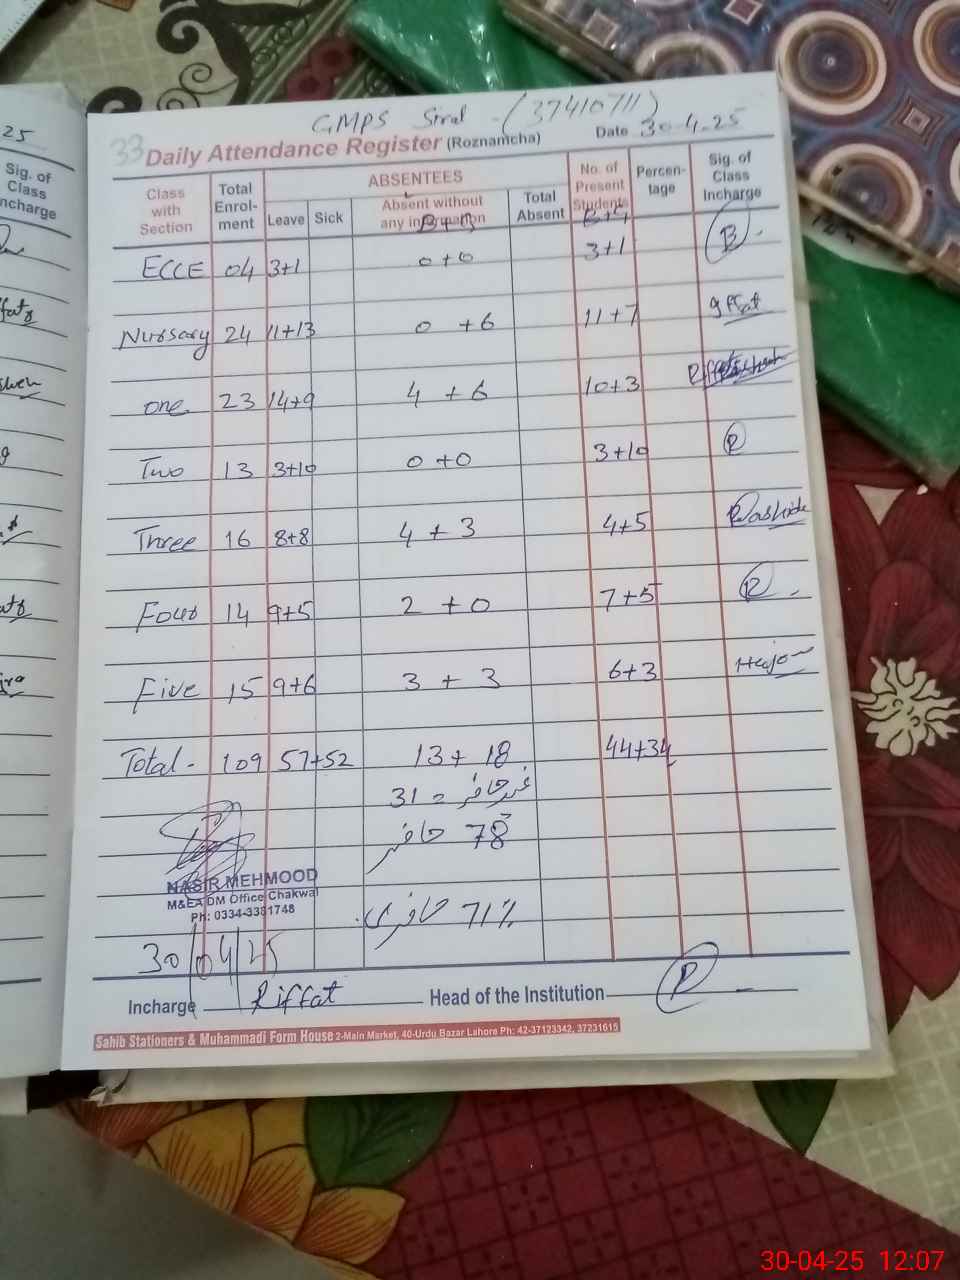 25
Sig. of
Class
ncharge
GMPS Siral - (37410711)
33 Daily Attendance Register (Roznamcha) Date 30-4-25
Class with Section Total Enrol-ment ABSENTEES Leave Sick Absent without any information Total Absent No. of Present Students Percen-tage Sig. of Class Incharge
B+G B+G
ECCE 04 3+1 0+0 3+1 B
Nursary 24 11+13 0 +6 11+7 gffat
one 23 14+9 4 +6 10+3
Two 13 3+10 0+0 3+10 R
Three 16 8+8 4 + 3 4+5 Rashida
Four 14 9+5 2 +0 7+5 R
Five 15 9+6 3 + 3 6+3
Total - 109 57+52 13+ 18 44+34
غیر حاضر = 31
78 حاضر
71% حاضری
NASIR MEHMOOD
M&EA DM Office Chakwal
Ph: 0334-3381748
30/04/25
Incharge Riffat Head of the Institution R
Sahib Stationers & Muhammadi Form House 2-Main Market, 40-Urdu Bazar Lahore Ph: 42-37123342, 37231615
30-04-25 12:07